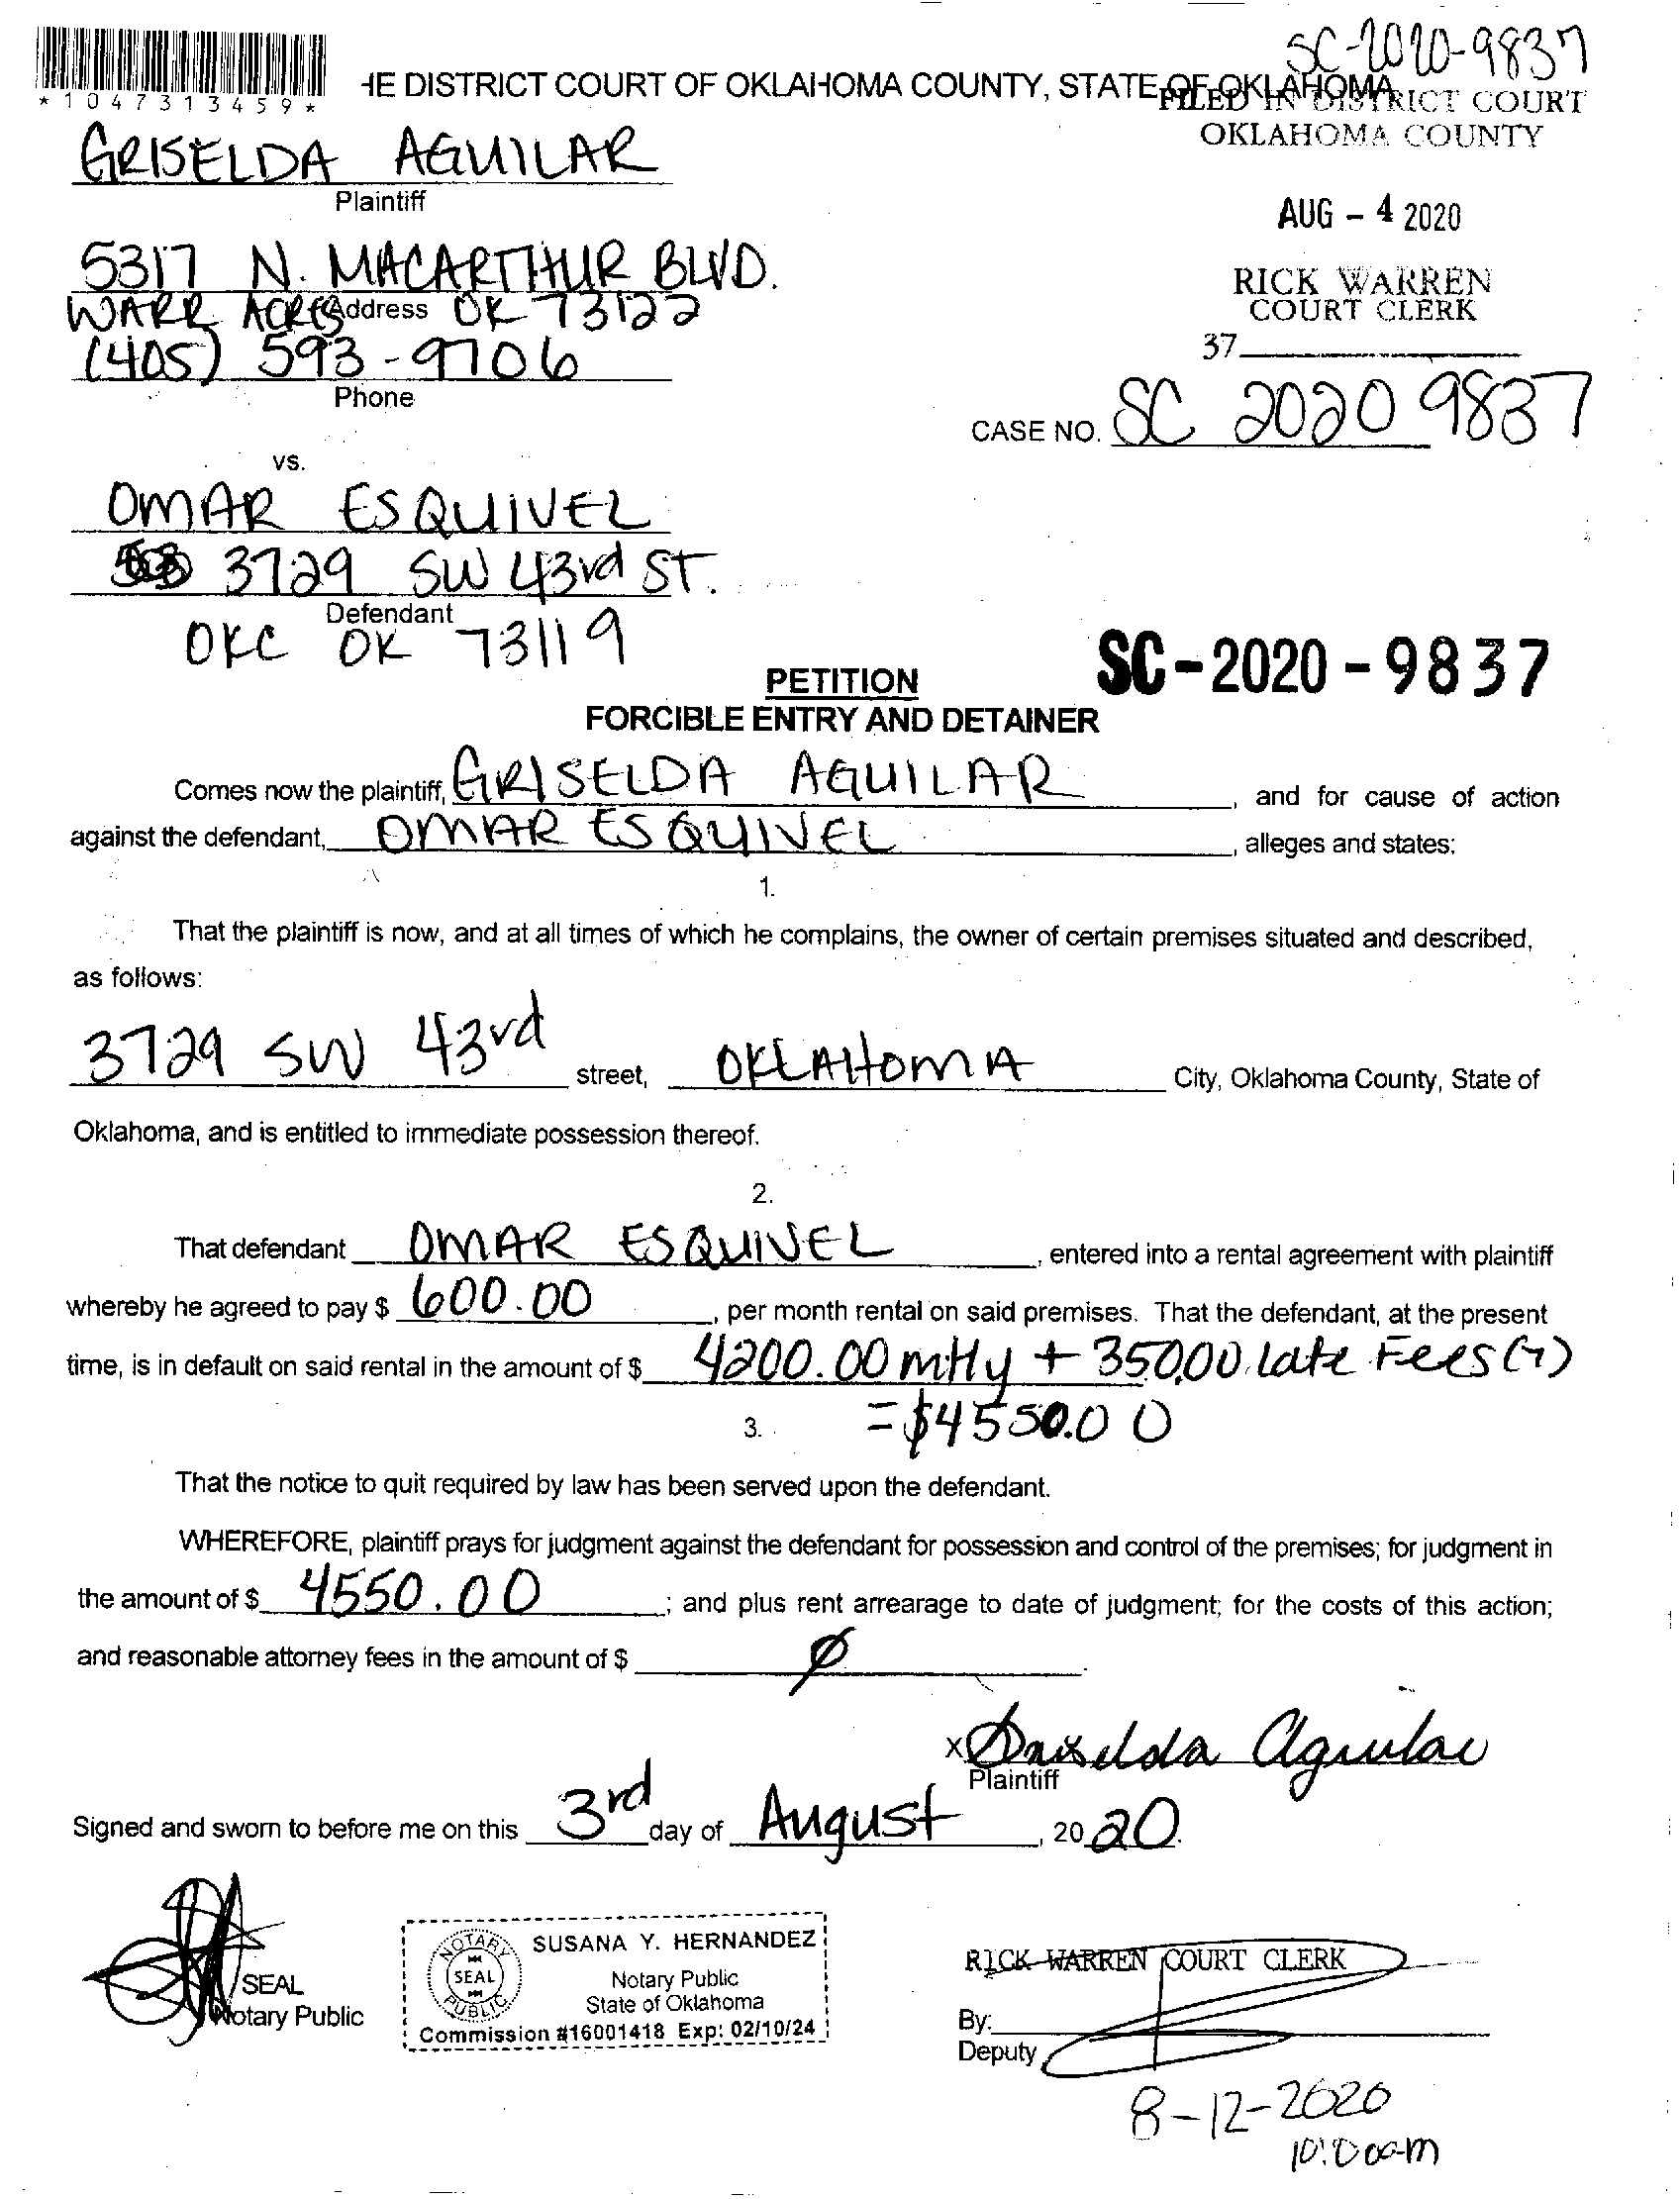 SC-2020-9837
*1047313459*
HE DISTRICT COURT OF OKLAHOMA COUNTY, STATE OF OKLAHOMA
FILED IN DISTRICT COURT
OKLAHOMA COUNTY
GRISELDA AGUILAR
Plaintiff
AUG - 4 2020
5317 N. MACARTHUR BLVD.
WARR ACRES Address OK 73122
RICK WARREN
COURT CLERK
37
(405) 593-9706
Phone
CASE NO. SC 2020 9837
vs.
OMAR ESQUIVEL
3729 SW 43rd ST.
Defendant
OKC OK 73119
SC-2020-9837
PETITION
FORCIBLE ENTRY AND DETAINER
Comes now the plaintiff, GRISELDA AGUILAR, and for cause of action
against the defendant, OMAR ESQUIVEL, alleges and states:
1.
That the plaintiff is now, and at all times of which he complains, the owner of certain premises situated and described,
as follows:
3729 SW 43rd street, OKLAHOMA City, Oklahoma County, State of
Oklahoma, and is entitled to immediate possession thereof.
2.
That defendant OMAR ESQUIVEL, entered into a rental agreement with plaintiff
whereby he agreed to pay $ 600.00, per month rental on said premises. That the defendant, at the present
time, is in default on said rental in the amount of $ 4200.00 mtly + 350.00 late Fees (7)
= $4550.00
3.
That the notice to quit required by law has been served upon the defendant.
WHEREFORE, plaintiff prays for judgment against the defendant for possession and control of the premises; for judgment in
the amount of $ 4550.00; and plus rent arrearage to date of judgment; for the costs of this action;
and reasonable attorney fees in the amount of $ Ø.
x Griselda Aguilar
Plaintiff
Signed and sworn to before me on this 3rd day of August, 2020.
SEAL
Notary Public
NOTARY SEAL PUBLIC
SUSANA Y. HERNANDEZ
Notary Public
State of Oklahoma
Commission #16001418 Exp: 02/10/24
RICK WARREN COURT CLERK
By:
Deputy
8-12-2020
10:00am